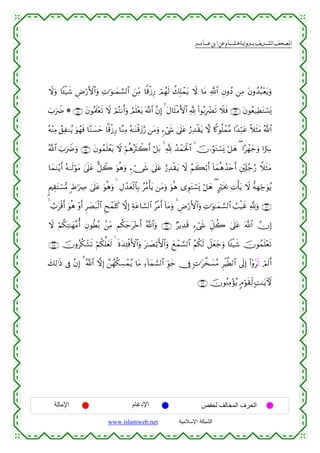 المصحف الشريف برواية هشام عن ابن عامر
وَيَعْبُدُونَ مِن دُونِ ٱللَّهِ مَا لَا يَمْلِكُ لَهُمْ رِزْقًا مِّنَ ٱلسَّمَـٰوَٰتِ وَٱلْأَرْضِ شَيْـًٔا وَلَا
يَسْتَطِيعُونَ فَلَا تَضْرِبُوا۟ لِلَّهِ ٱلْأَمْثَالَ إِنَّ ٱللَّهَ يَعْلَمُ وَأَنتُمْ لَا تَعْلَمُونَ ۞ ضَرَبَ
ٱللَّهُ مَثَلًا عَبْدًا مَّمْلُوكًا لَّا يَقْدِرُ عَلَىٰ شَىْءٍ وَمَن رَّزَقْنَـٰهُ مِنَّا رِزْقًا حَسَنًا فَهُوَ يُنفِقُ مِنْهُ
سِرًّا وَجَهْرًا هَلْ يَسْتَوُۥنَ ٱلْحَمْدُ لِلَّهِ بَلْ أَكْثَرُهُمْ لَا يَعْلَمُونَ وَضَرَبَ ٱللَّهُ
مَثَلًا رَّجُلَيْنِ أَحَدُهُمَا أَبْكَمُ لَا يَقْدِرُ عَلَىٰ شَىْءٍ وَهُوَ كَلٌّ عَلَىٰ مَوْلَىٰهُ أَيْنَمَا
يُوَجِّههُّ لَا يَأْتِ بِخَيْرٍ هَلْ يَسْتَوِى هُوَ وَمَن يَأْمُرُ بِٱلْعَدْلِ وَهُوَ عَلَىٰ صِرَٰطٍ مُّسْتَقِيمٍ
وَلِلَّهِ غَيْبُ ٱلسَّمَـٰوَٰتِ وَٱلْأَرْضِ وَمَا أَمْرُ ٱلسَّاعَةِ إِلَّا كَلَمْحِ ٱلْبَصَرِ أَوْ هُوَ أَقْرَبُ
إِنَّ ٱللَّهَ عَلَىٰ كُلِّ شَىْءٍ قَدِيرٌ وَٱللَّهُ أَخْرَجَكُم مِّنۢ بُطُونِ أُمَّهَـٰتِكُمْ لَا
تَعْلَمُونَ شَيْـًٔا وَجَعَلَ لَكُمُ ٱلسَّمْعَ وَٱلْأَبْصَـٰرَ وَٱلْأَفْـِٔدَةَ لَعَلَّكُمْ تَشْكُرُونَ
أَلَمْ يَرَوْا۟ إِلَى ٱلطَّيْرِ مُسَخَّرَٰتٍ فِى جَوِّ ٱلسَّمَاءِ مَا يُمْسِكُهُنَّ إِلَّا ٱللَّهُ إِنَّ فِى ذَٰلِكَ
لَـَٔايَـٰتٍ لِّقَوْمٍ يُؤْمِنُونَ
الحرف المخالف لحفص الإدغام الإمالة
الشبكة الإسلامية www.islamweb.net